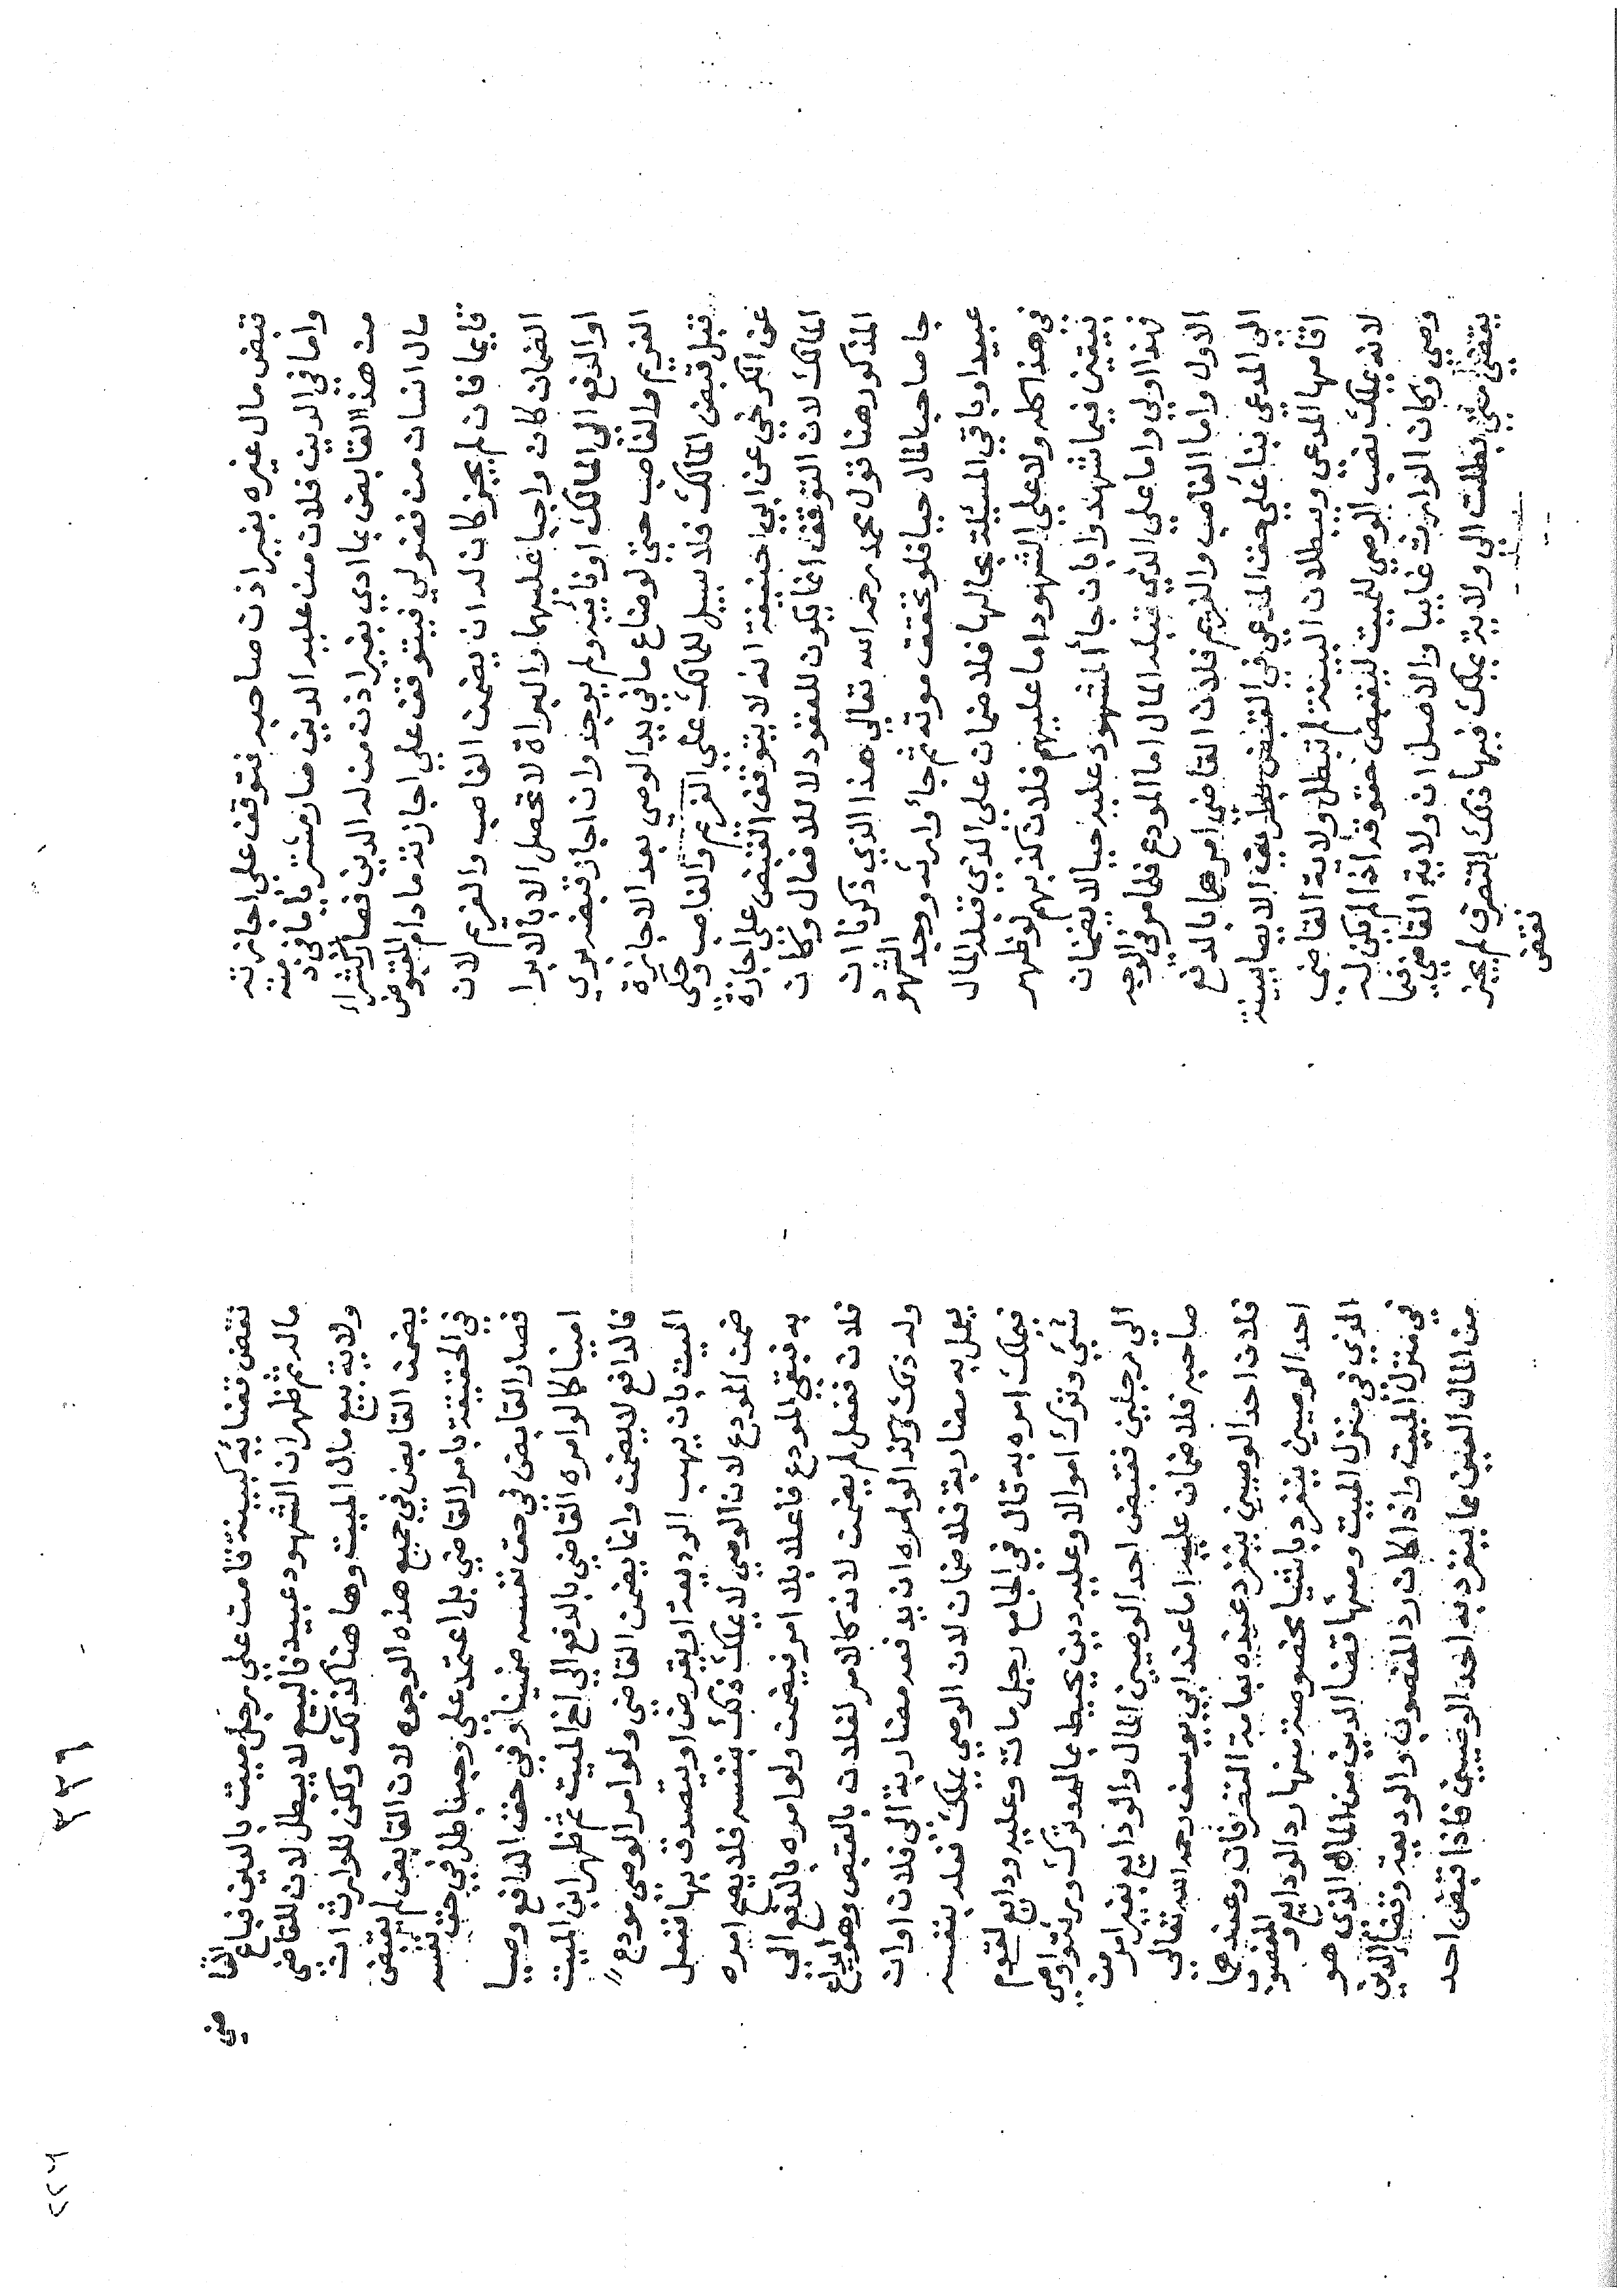 قبض مال غيره بغير اذن صاحبه فتوقف على اجازته
واما في الدين فلان من عليه الدين صار مشتريا ما في ذمته
من هذا القابض بما ادي بغير اذن من له الدين فصار كشراء
مال انسان من فضولي فيتوقف علي اجازته مادام المقبوض
قايما فان لم يجز كان له ان يضمن الغاصب والغريم لان
الضمان كان واجبا عليهما والبراة لا تحصل الا بالابرا
او الدفع الي المالك او نائبه ولم يوجد وان اجاز قبضه بري
الغريم والغاصب حتي لو ضاع ما في يد الوصي بعد الاجازة
قبل قبض المالك فلا سبيل للمالك علي الغريم والغاصب وحكي
عن الكرخي عن ابي حنيفة انه لا يتوقف القبض علي اجازة
المالك لان التوقف انما يكون للعقود لا للافعال وكان
المذكور هنا قول محمد رحمه الله تعالي هذا الذي ذكرنا ان
جا صاحب المال حيا فلو تحقق موته ثم جأ وارثه ووجد الشهود
عبيدا وباقي المسئلة بحالها فلا ضمان علي الذي قبله المال
في هذا كله ولا علي الشهود اما عليهم فلان كذبهم لو ظهر
بيقين فيما شهدوا بان جأ المشهود عليه حيا لا يضمنان
فهذا اولي واما علي الذي قبله المال اما المودع فلما مر في الوجه
الاول واما الغاصب والغريم فلان القاضي امرهما بالدفع
الي المدعي بنأ علي حق المدعي في القبض بطريقة الايصا بينة
اقامها المدعي وببطلان البينة لم تبطل ولاية القاضي
لانه يملك نصب الوصي للميت ليقبض حقوقه اذا لم يكن له
وصي وكان الوارث غايبا والاصل ان ولاية القاضي فيما
يقضي متي بطلت الي ولاية يملك فيها ذلك التصرف لم يجز
نقض
٣٣٦
نقض قضائه كبينة قامت علي رجل ميت بالدين فباع القاضي
ماله ثم ظهر ان الشهود عبيد فالبيع لا يبطل لان للقاضي
ولاية بيع مال الميت وهاهنا كذلك ولكن للوارث ان
يضمن القابض في جميع هذه الوجوه لان القابض لم يقبض
في الحقيقة بامر القاضي بل اعتمد علي وجه باطل في حق نفسه
فصار القابض في حق نفسه ضمينا وفي حق الدافع وصيا
فالدافع لا يضمن وانما يضمن القاضي ولو امر الوصي مودع
امينا كما لو امره القاضي بالدفع الي اخ الميت ثم ظهر ابن الميت
الميت بان يهب الوديعة او يقرض او يتصدق بها ففعل
ضمن المودع لان الوصي لا يملك ذلك بنفسه فلا يصح امره
به فبقي المودع فاعلا بلا امر فيضمن ولو امره بالدفع الي
فلان ففعل لم يضمن لانه كالامر لفلان بالقبض وهو ايداع
وله ذلك وكذا لو امره ان يدفعه مضاربة الي فلان او ان
يعمل به مضاربة فلا ضمان لان الوصي يملك فعله بنفسه
فيملك امره به قال في الجامع رجل مات وعليه ودايع لقوم
شئ وترك اموالا وعليه دين يحيط بماله وترك ورثة واوصي
الي رجلين فقبض احد الوصيين المال والودايع بغير امر من
صاحبه فلا ضمان عليه اما عند ابي يوسف رحمه الله تعالي
فلان احد الوصيين ينفرد عنده بعامة التصرفات وعندهما
احد الوصيين ينفرد باشيا مخصوصة منها رد الودايع والمغصوب
الذي في منزل الميت ومنها قضا الدين من المال الذي هو
في منزل الميت واذا كان رد المغصوب والوديعة وقضاء الدين
من المال العين مما ينفرد به احد الوصيين فاذا قبض احد
٢٢٦